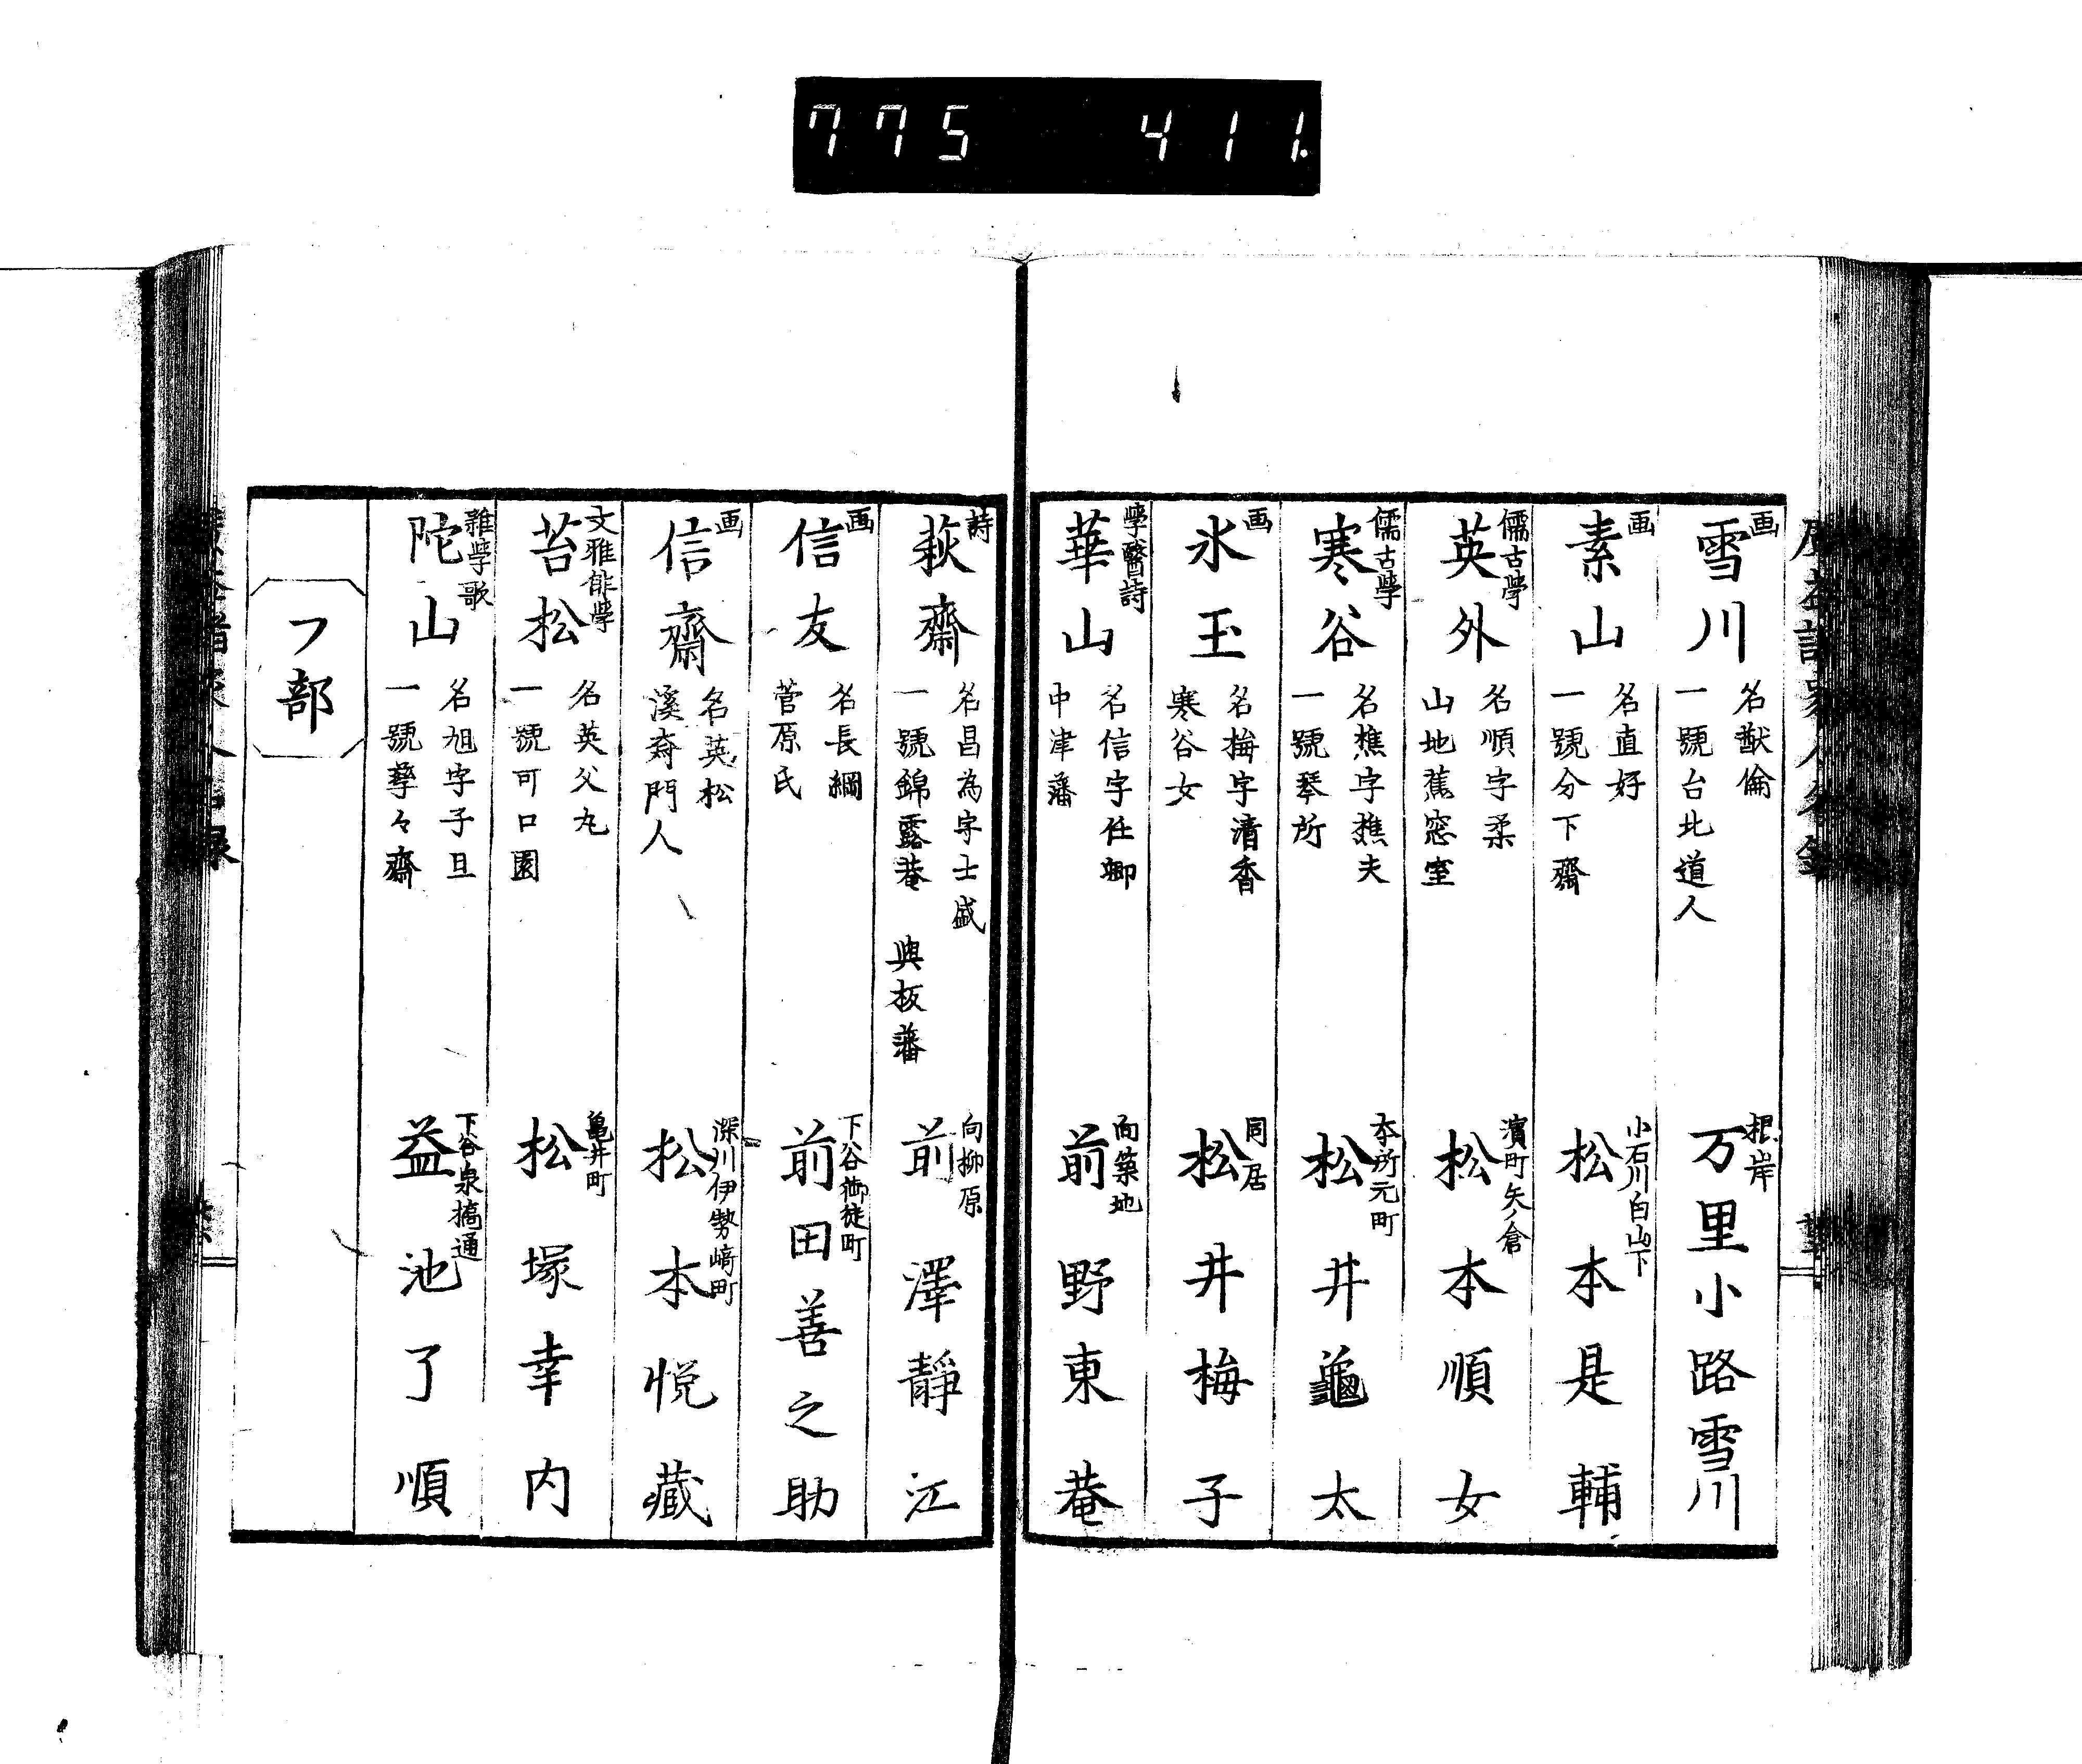 775 411.
画
雪川
名猷倫
一號台北道人
根岸
万里小路雪川
画
素山
名直好
一號分下齋
小石川白山下
松本是輔
儒古學
英外
名順字柔
山地蕉窓室
濱町矢ノ倉
松本順女
儒古學
寒谷
名樵字樵夫
一號琴所
本所元町
松井龜太
画
氷玉
名梅字清香
寒谷女
同居
松井梅子
學醫詩
華山
名信字任卿
中津藩
南築地
前野東菴
詩
萩齋
名昌為字士盛
一號錦露菴 與板藩
向柳原
前澤靜江
画
信友
名長綱
菅原氏
下谷御徒町
前田善之助
画
信齋
名英松
溪斎門人
深川伊勢﨑町
松本悦藏
文雅俳學
苔松
名英父丸
一號可口園
亀井町
松塚幸内
雜學歌
陀山
名旭字子旦
一號孳々齋
下谷泉橋通
益池了順
フ部